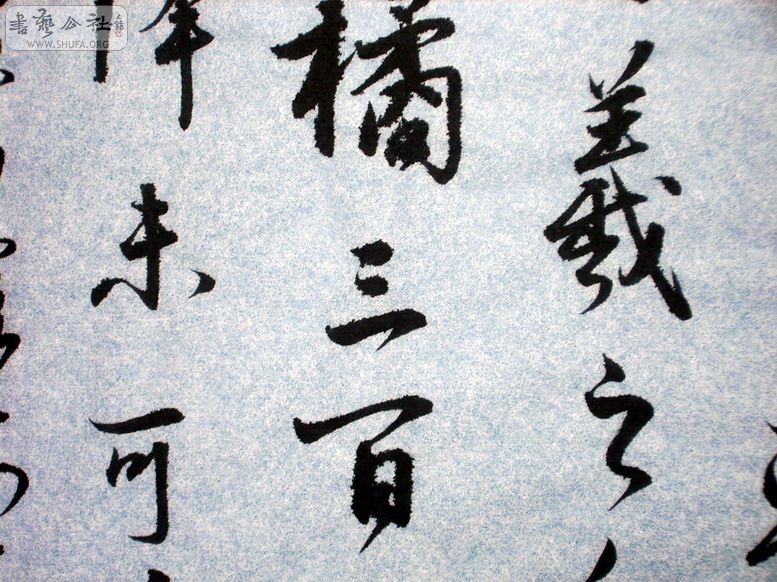 羲之
橘三百
降未可
書藝公社
WWW.SHUFA.ORG